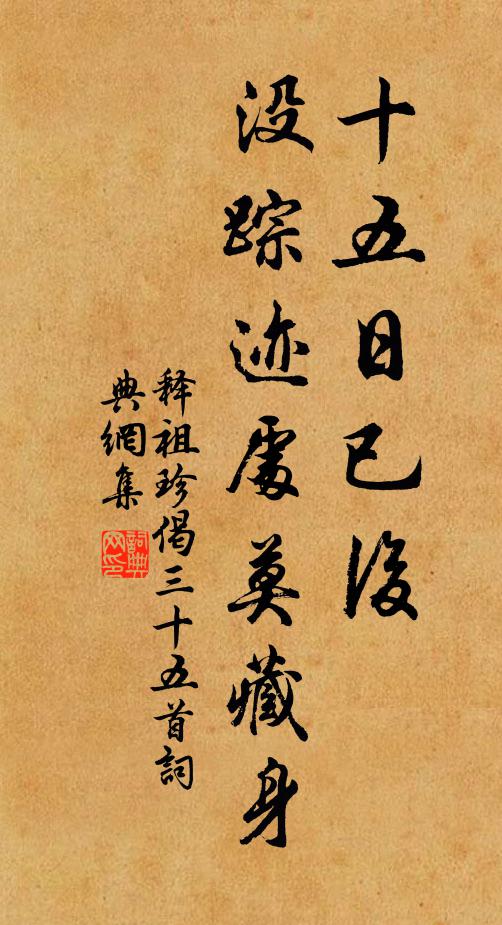 十五日已後
没踪迹處莫藏身
释祖珍偈三十五首詞
典網集
詞典
网印